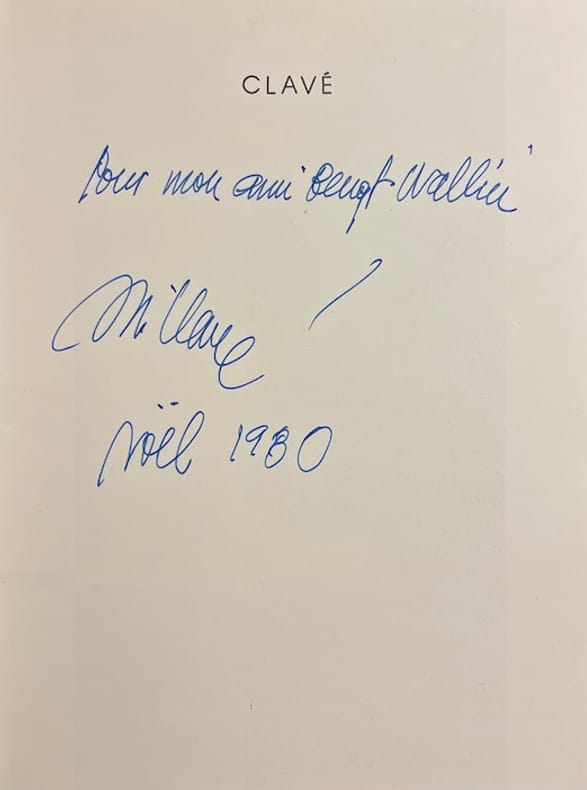 CLAVÉ
Pour mon ami Bengt Wallin
Clavé
Noël 1980